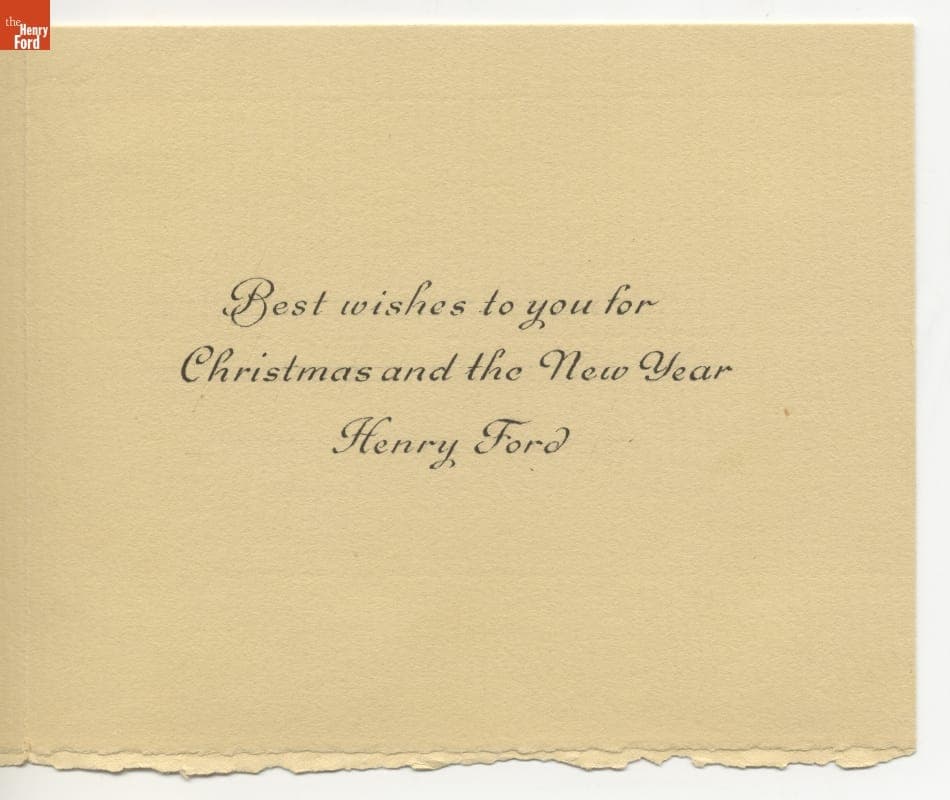 the
Henry
Ford
Best wishes to you for
Christmas and the New Year
Henry Ford